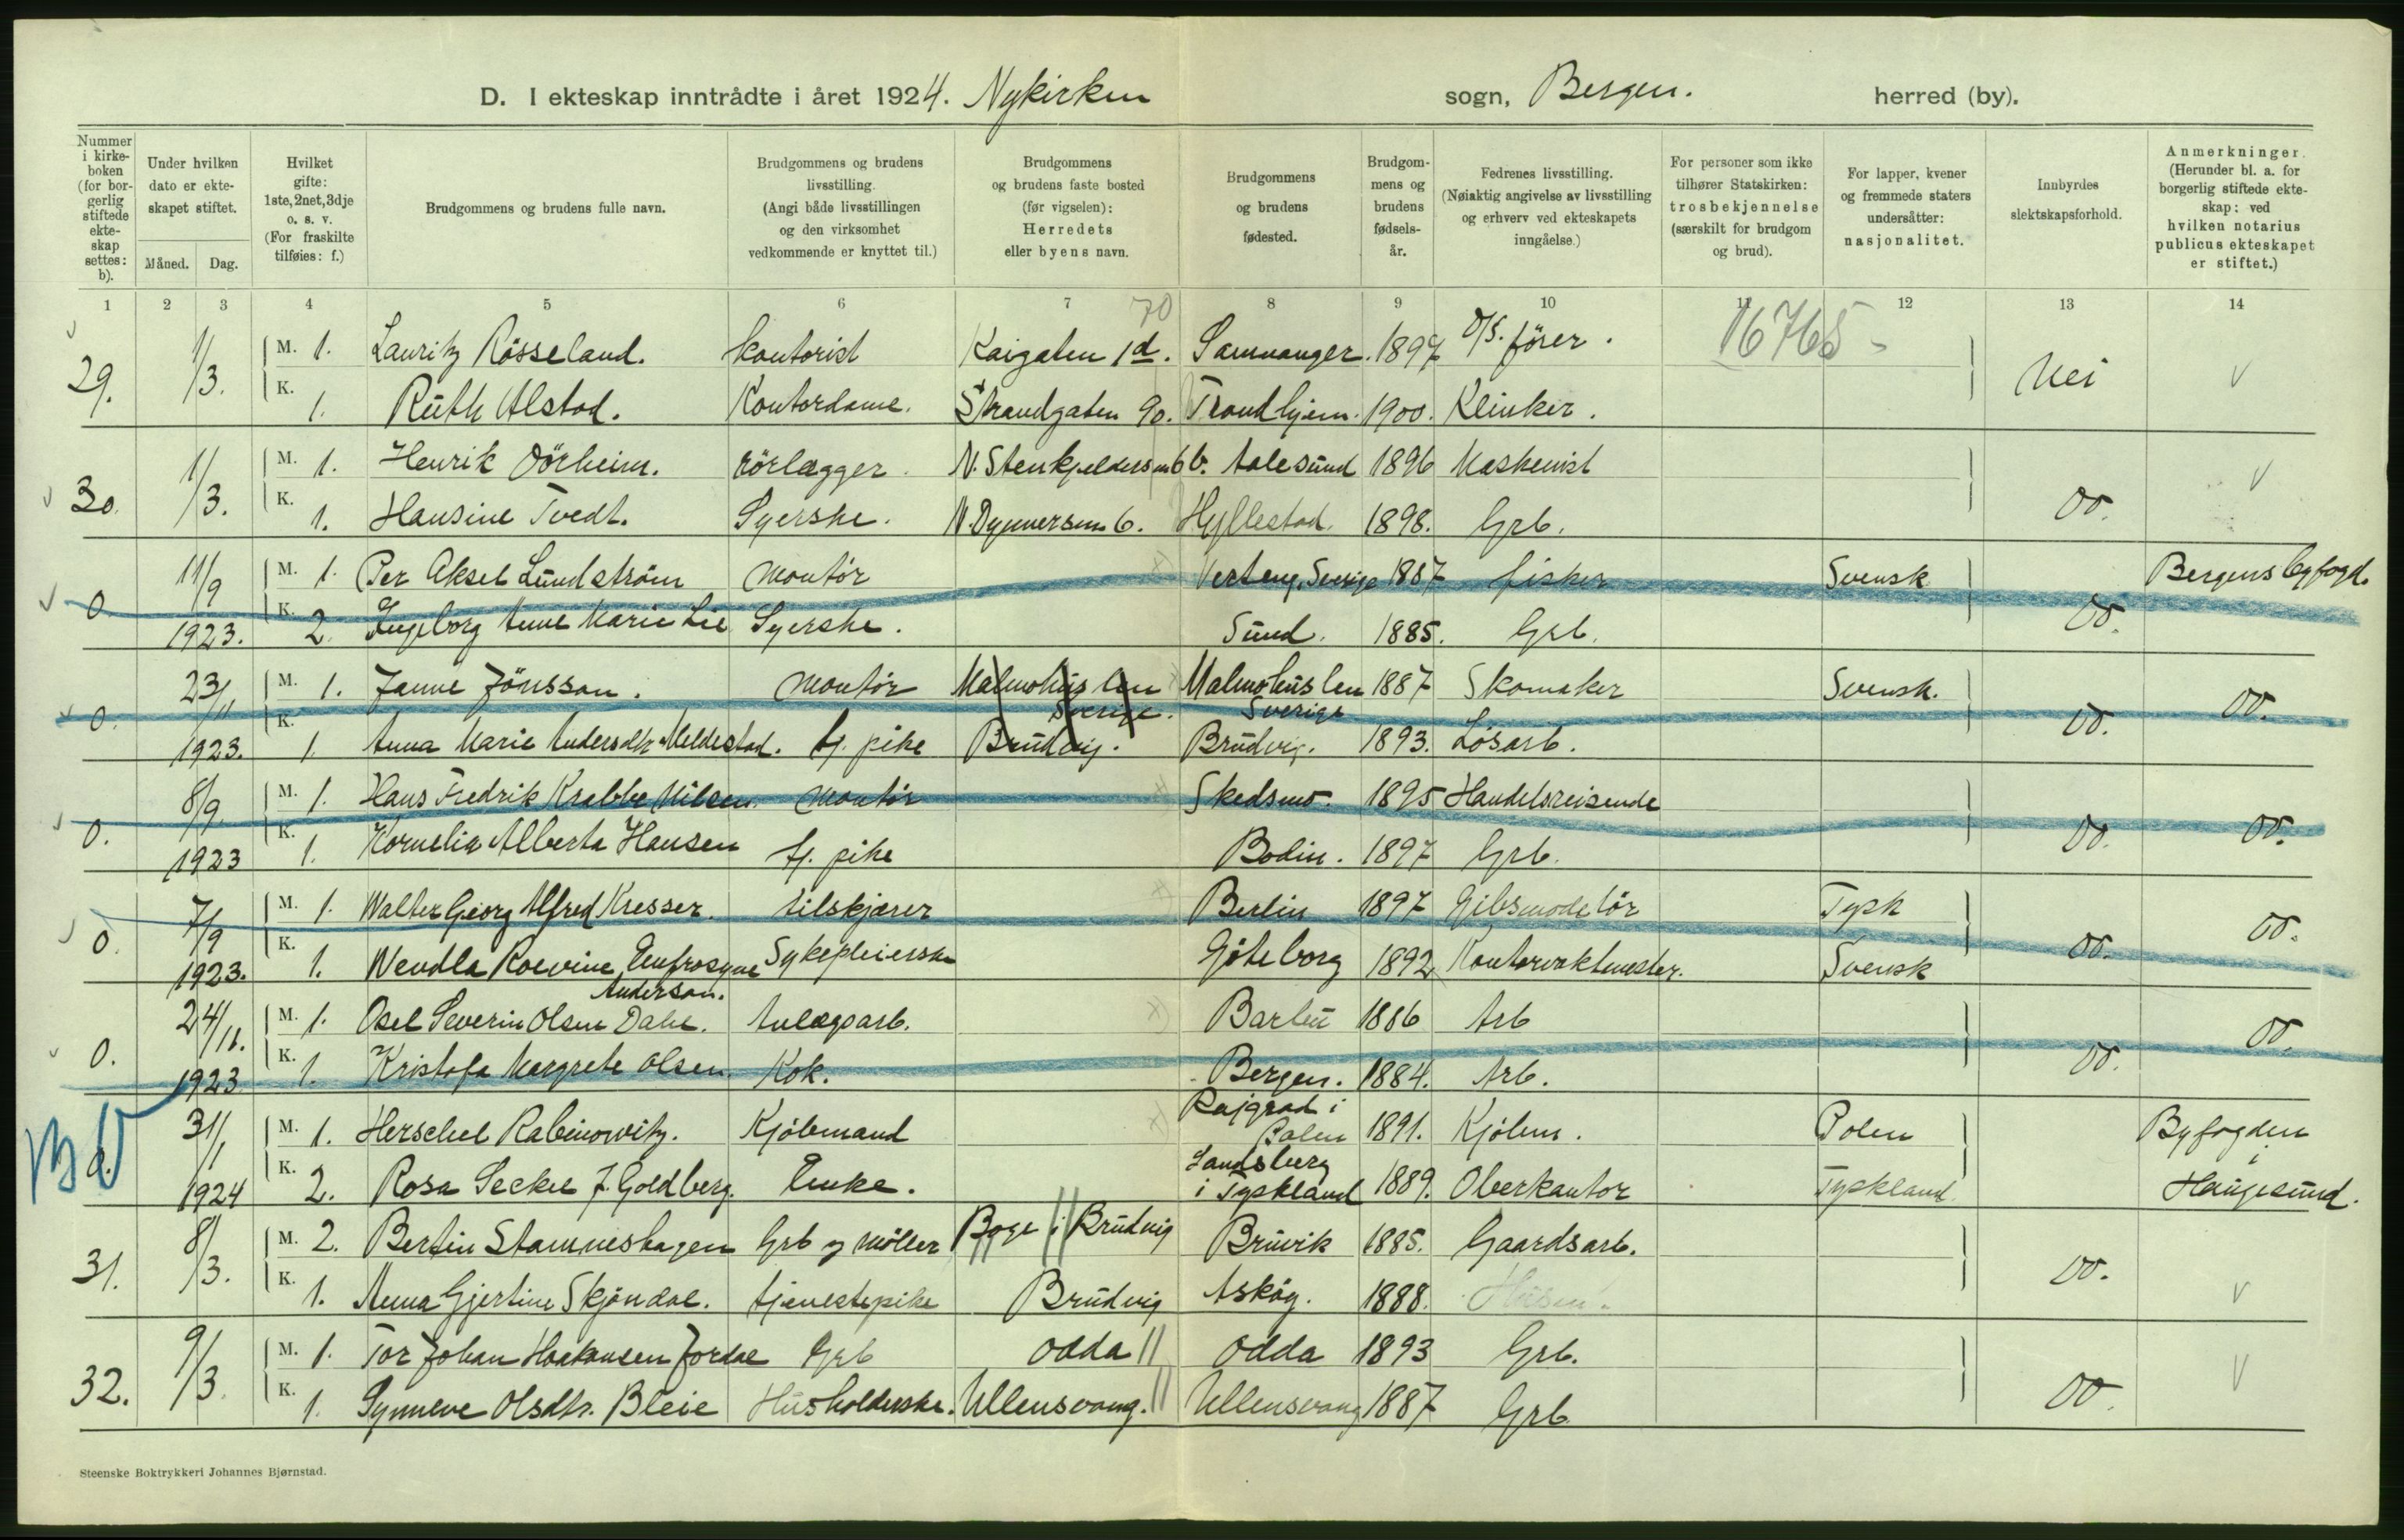 D. I ekteskap inntrådte i året 1924. Nykirken sogn, Bergen. herred (by).
Nummer i kirkeboken (for borgerlig stiftede ekteskap settes: b).
Under hvilken dato er ekteskapet stiftet.
Måned. Dag.
Hvilket gifte: 1ste, 2net, 3dje o. s. v. (For fraskilte tilføies: f.)
Brudgommens og brudens fulle navn.
Brudgommens og brudens livsstilling. (Angi både livsstillingen og den virksomhet vedkommende er knyttet til.)
Brudgommens og brudens faste bosted (før vigselen): Herredets eller byens navn.
Brudgommens og brudens fødested.
Brudgommens og brudens fødselsår.
Fedrenes livsstilling. (Nøiaktig angivelse av livsstilling og erhverv ved ekteskapets inngåelse.)
For personer som ikke tilhører Statskirken: trosbekjennelse (særskilt for brudgom og brud).
For lapper, kvener og fremmede staters undersåtter: nasjonalitet.
Innbyrdes slektskapsforhold.
Anmerkninger. (Herunder bl. a. for borgerlig stiftede ekteskap: ved hvilken notarius publicus ekteskapet er stiftet.)
1 2 3 4 5 6 7 8 9 10 11 12 13 14
70 16765
29. 1/3. M. 1. Lauritz Røsseland. kontorist Kaigaten 1d. Samnanger. 1897 D/S. fører. Nei
K. 1. Ruth Alstad. Kontordame. Strandgaten 90. Trondhjem. 1900. Klinker.
30. 1/3. M. 1. Henrik Dörheim. rörlægger. N. Stenkjeldersm 6 b. Aalesund 1896 Maskenist
K. 1. Hansine Tvedt. Syerske. N. Dynnersm 6. Hyllestad. 1898. Grb. Do.
0. 11/9 M. 1. Per Aksel Lundström Montør Sverige 1887 fisker Svensk Bergens byfogd.
1923. K. 2. Ingeborg Anne Marie Lie Syerske. Sund. 1885. Grb. Do.
0. 23/11 M. 1. Janne Jönsson. Montør Malmohus len Sverige. Malmohus len Sverige 1887 Skomaker Svensk. Do.
1923. K. 1. Anna Marie Andersdtr Meldestad. tj. pike Brudvig. Brudvig. 1893. Løsarb. Do.
0. 8/9 M. 1. Hans Fredrik Krabbe Nilsen Montør Skedsmo. 1895 Handelsreisende
1923 K. 1. Kornelia Alberta Hansen tj. pike Bodin. 1897 Grb. Do. Do.
0. 7/9 M. 1. Walter Georg Alfred Kresser. tilskjærer Berlin 1897 Gibsmodelør Tysk Do.
1923. K. 1. Wendla Anderson. Sykepleierske Göteborg 1892 Kontorvaktmester. Svensk Do.
0. 24/11. M. 1. Osel Severin Olsen Dahl. Anlegsarb. Bardu 1886 Arb Do.
1923 K. 1. Kristofa Margrete Olsen. Kok. Bergen. 1884. Arb. Do.
31/1 M. 1. Herschel Rabinowitz. Kjöbmand Rajgrad i Polen 1891. Kjöbm. Polen Byfogden i
1924 K. 2. Rosa Seckel f. Goldberg. Enke. Landsberg i Tyskland 1889. Oberkantor Tyskland. Haugesund.
31. 8/3. M. 2. Bertin Stamneshagen Grb og møller Boge i Brudvig Bruvik 1885. Gaardsarb.
K. 1. Anna Gjertine Skjøndal. tjenestepike Brudvig Askøy. 1888. Do.
32. 9/3. M. 1. Tor Johan Haakonsen Jordal Grb Odda Odda 1893 Grb.
K. 1. Synneve Olsdtr. Bleie Husholderske. Ullensvang. Ullensvang 1887 Grb Do.
Steenske Boktrykkeri Johannes Bjørnstad.